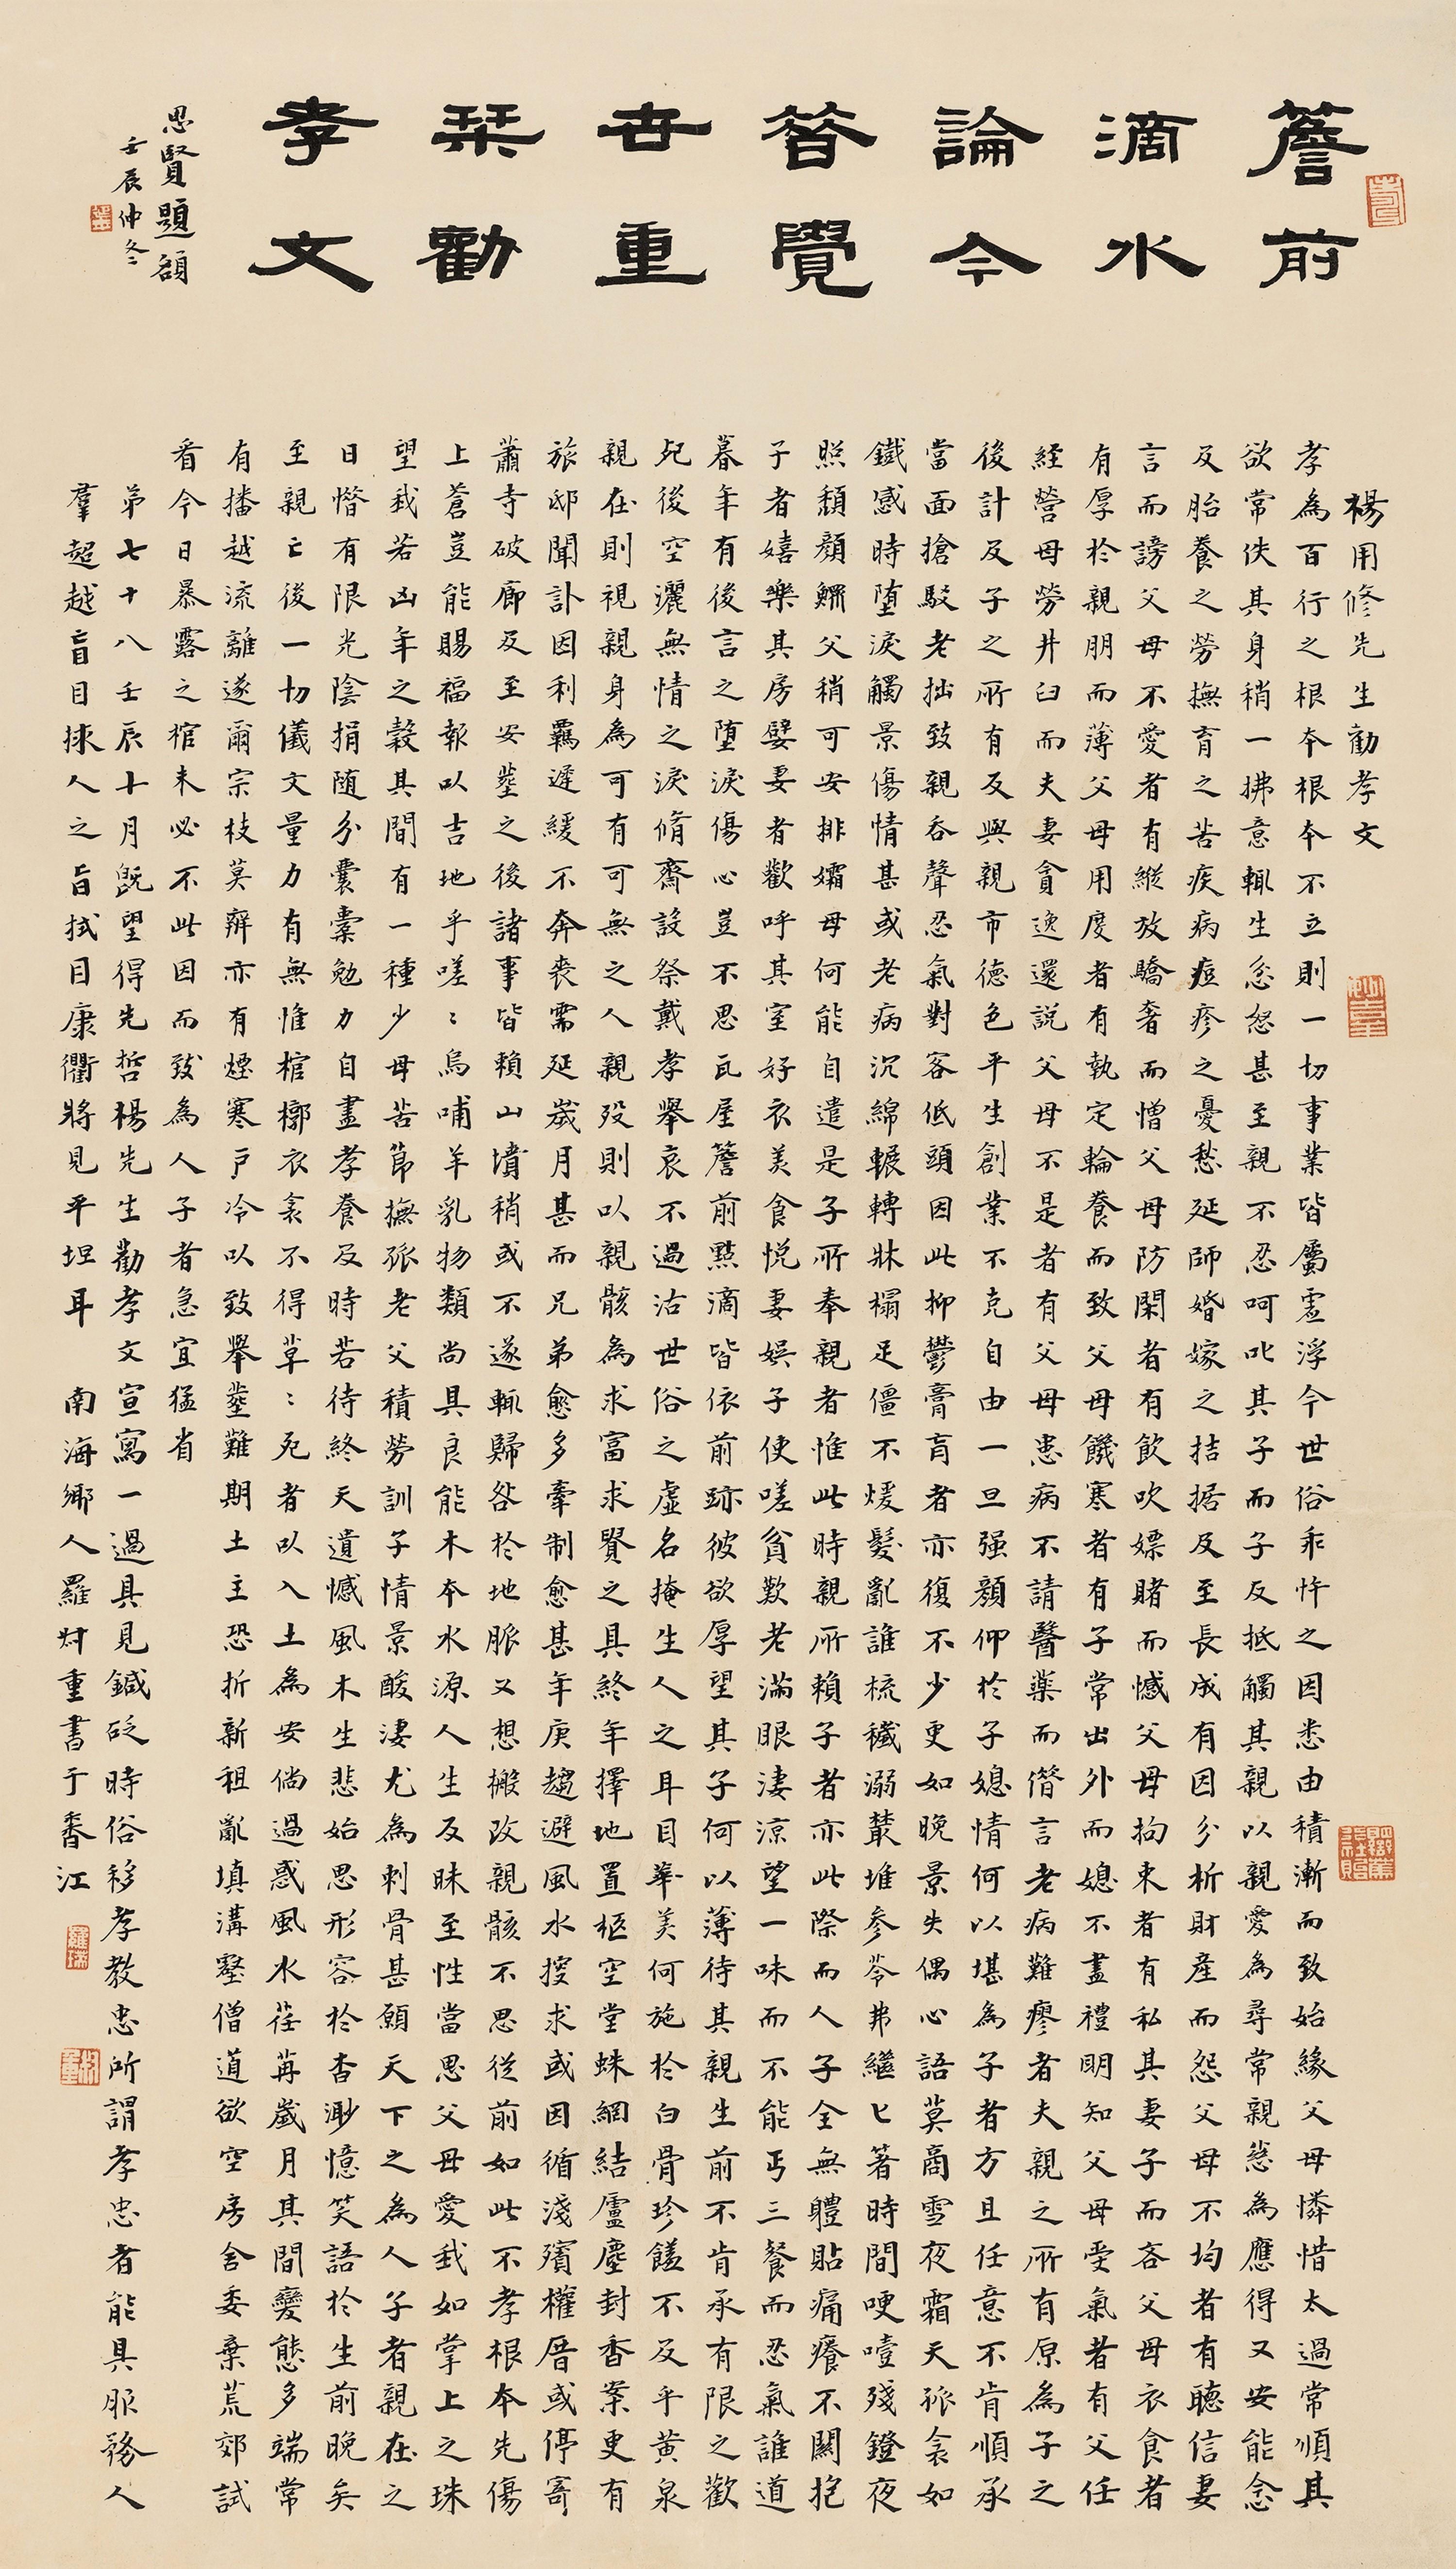 簷前
滴水
論今
昔覺
世重
栞勸
孝文
思賢題額
壬辰仲冬
楊用修先生勸孝文
孝為百行之根本根本不立則一切事業皆屬虛浮今世俗乖忤之因悉由積漸而致始緣父母憐惜太過常順其
欲常佚其身稍一拂意輒生忿怒甚至親不忍呵叱其子而子反抵觸其親以親愛為尋常親慈為應得又安能念
及胎養之勞撫育之苦疾病痘疹之憂愁延師婚嫁之拮据及至長成有因分析財產而怨父母不均者有聽信妻
言而謗父母不愛者有縱放驕奢而憎父母防閑者有飲吹嫖賭而憾父母拘束者有私其妻子而吝父母衣食者
有厚於親朋而薄父母用度者有執定輪養而致父母饑寒者有子常出外而媳不盡禮明知父母受氣者有父任
經營母勞井臼而夫妻貪逸還說父母不是者有父母患病不請醫藥而僭言老病難瘳者夫親之所有原為子之
後計及子之所有反與親市德色平生創業不克自由一旦强顏仰於子媳情何以堪為子者方且任意不肯順承
當面搶駁老拙致親吞聲忍氣對客低頭因此抑鬱膏肓者亦復不少更如晚景失偶心語莫商雪夜霜天孤衾如
鐵感時墮淚觸景傷情甚或老病沉綿輾轉牀榻足僵不煖髮亂誰梳穢溺叢堆參苓弗繼匕箸時間哽噎殘鐙夜
照頹顏鰥父稍可安排孀母何能自遣是子所奉親者惟此時親所賴子者亦此際而人子全無軆貼痛癢不關抱
子者嬉樂其房嬖妻者歡呼其室好衣美食悅妻娛子使嗟貧歎老滿眼淒涼望一味而不能丐三餐而忍氣誰道
暮年有後言之墮淚傷心豈不思瓦屋簷前點滴皆依前跡彼欲厚望其子何以薄待其親生前不肯承有限之歡
死後空灑無情之淚脩齋設祭戴孝舉哀不過沽世俗之虛名掩生人之耳目華美何施於白骨珍饈不及乎黃泉
親在則視親身為可有可無之人親歿則以親骸為求富求賢之具終年擇地置柩空堂蛛網結廬塵封香案更有
旅邸聞訃因利羈遲緩不奔喪需延歲月甚而兄弟愈多牽制愈甚年庚趨避風水揑求或因循淺殯權厝或停寄
蕭寺破廊及至安塟之後諸事皆賴山墳稍或不遂輒歸咎於地脈又想搬改親骸不思從前如此不孝根本先傷
上蒼豈能賜福報以吉地乎嗟〻烏哺羊乳物類尚具良能木本水源人生反昧至性當思父母愛我如掌上之珠
望我若凶年之穀其間有一種少母苦節撫孤老父積勞訓子情景酸淒尤為刺骨甚願天下之為人子者親在之
日惜有限光陰捐随分囊橐勉力自盡孝養及時若待終天遺憾風木生悲始思形容於杳渺憶笑語於生前晚矣
至親亡後一切儀文量力有無惟棺槨衣衾不得草〻死者以入土為安倘過惑風水荏苒歲月其間變態多端常
有播越流離遂爾宗枝莫辨亦有煙寒戶冷以致舉塟難期土主恐折新祖亂填溝壑僧道欲空房舍委棄荒郊試
看今日暴露之棺未必不此因而致為人子者急宜猛省
第七十八壬辰十月既望得先哲楊先生勸孝文宣寫一過具見鍼砭時俗移孝教忠所謂孝忠者能具服務人
羣超越盲目捄人之旨拭目康衢將見平坦耳　南海鄉人羅叔重書于香江